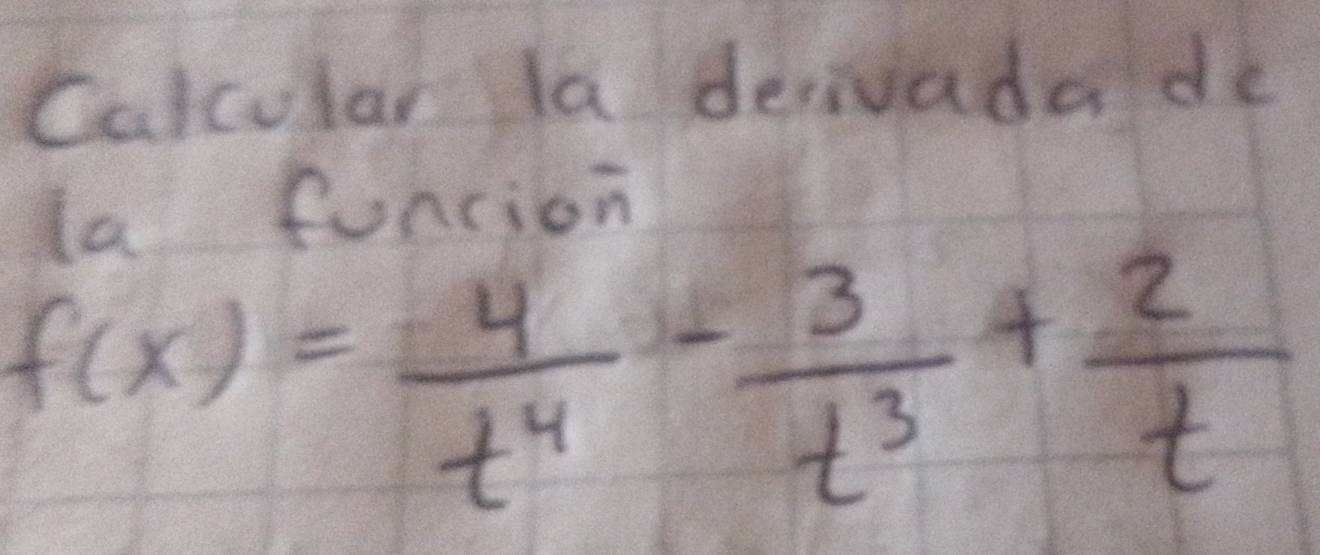 Calcular la derivada de
la funcion̄
f(x) = \frac{4}{t^4} - \frac{3}{t^3} + \frac{2}{t}